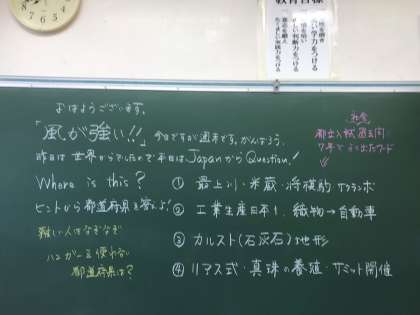 教育目標
学力をつける
判断力をつける
実践力をつける
おはようございます。
「風が強い!!」今日ですが週末です。がんばろう。
昨日は世界からでしたので本日はJapanからQuestion!
社会
都立入試過去問
7年で出たワード
Where is this?
ヒントから都道府県を答えよ!
難しい人はなぞなぞ
ハンガーを使わない
都道府県は?
① 最上川・米蔵・将棋駒 サクランボ
② 工業生産日本1、織物→自動車
③ カルスト(石灰石)地形
④ リアス式・真珠の養殖・サミット開催